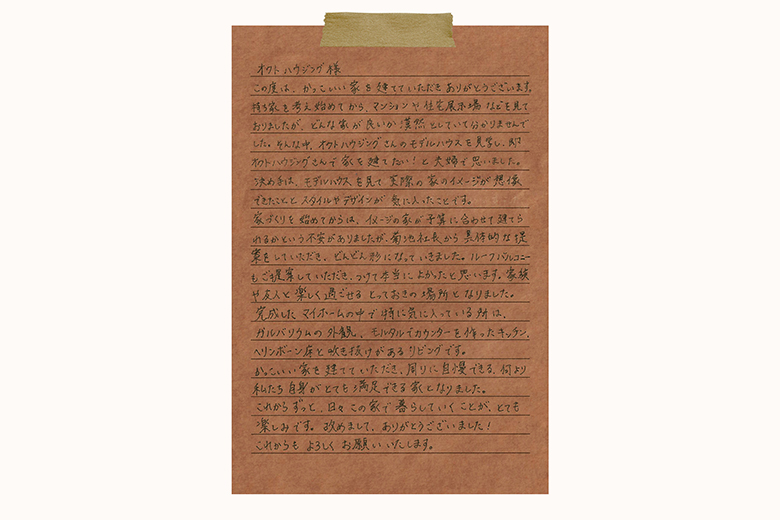 オウトハウジング様
この度は、かっこいい家を建てていただきありがとうございます。
持ち家を考え始めてから、マンションや住宅展示場などを見て
おりましたが、どんな家が良いか漠然としていて分かりませんで
した。そんな中、オウトハウジングさんのモデルハウスを見学し、即
オウトハウジングさんで家を建てたい！と夫婦で思いました。
決め手は、モデルハウスを見て実際の家のイメージが想像
できたこととスタイルやデザインが気に入ったことです。
家づくりを始めてからは、イメージの家が予算に合わせて建てら
れるかという不安がありましたが、菊池社長から具体的な提
案をしていただき、どんどん形になっていきました。ルーフバルコニー
もご提案していただき、つけて本当によかったと思います。家族
や友人と楽しく過ごせるとっておきの場所となりました。
完成したマイホームの中で特に気に入っている所は、
ガルバリウムの外観、モルタルでカウンターを作ったキッチン、
ヘリンボーン床と吹き抜けがあるリビングです。
かっこいい家を建てていただき、周りに自慢できる、何より
私たち自身がとても満足できる家となりました。
これからずっと、日々この家で暮らしていくことが、とても
楽しみです。改めまして、ありがとうございました！
これからもよろしくお願いいたします。